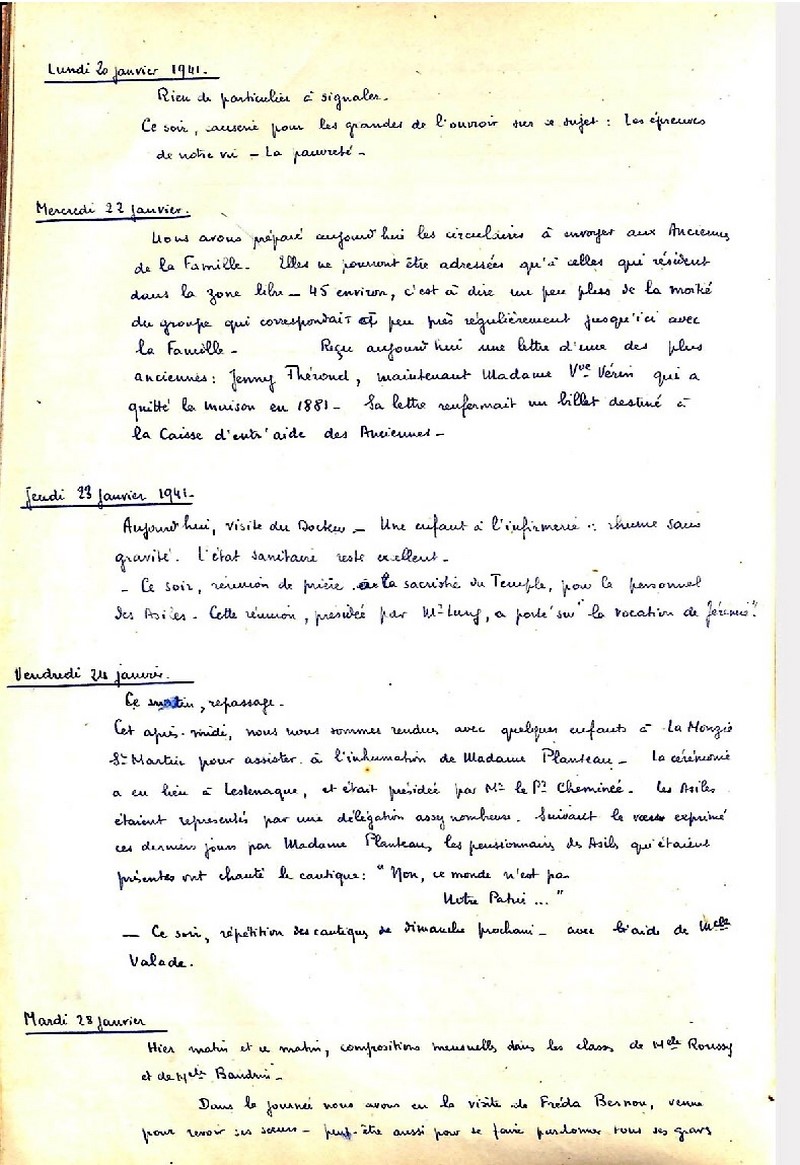 Lundi 20 janvier 1941.
Rien de particulier à signaler.
Ce soir, causerie pour les grandes de l'ouvroir sur ce sujet : Les épreuves
de notre vie — La pauvreté —
Mercredi 22 janvier.
Nous avons préparé aujourd'hui les circulaires à envoyer aux Anciennes
de la Famille. Elles ne pourront être adressées qu'à celles qui résident
dans la zone libre — 45 environ, c'est à dire un peu plus de la moitié
du groupe qui correspondait à peu près régulièrement jusqu'ici avec
la Famille — Reçu aujourd'hui une lettre d'une des plus
anciennes : Jenny Thérond, maintenant Madame Vve Vérin qui a
quitté la maison en 1881 — Sa lettre renfermait un billet destiné à
la Caisse d'entr'aide des Anciennes —
Jeudi 23 janvier 1941.
Aujourd'hui, visite du Docteur — Une enfant à l'infirmerie : rhume sans
gravité. L'état sanitaire reste excellent —
— Ce soir, réunion de prière à la sacristie du Temple, pour le personnel
des Asiles — Cette réunion, présidée par Mr Lung, a porté sur "la vocation de Jérémie".
Vendredi 24 janvier.
Ce matin, repassage —
Cet après-midi, nous nous sommes rendues avec quelques enfants à La Monzie
St Martin pour assister à l'inhumation de Madame Planteau — La cérémonie
a eu lieu à Lestenaque, et était présidée par Mr le Pr Cheminée — Les Asiles
étaient représentés par une délégation assez nombreuse. Suivant le voeu exprimé
ces derniers jours par Madame Planteau, les pensionnaires des Asiles qui étaient
présentes ont chanté le cantique : "Non, ce monde n'est pas
Notre Patrie ..."
— Ce soir, répétition des cantiques de dimanche prochain — avec l'aide de Melle
Valade.
Mardi 28 janvier
Hier matin et ce matin, compositions mensuelles dans les classes de Melle Roussy
et de Melle —
Dans la journée nous avons eu la visite de Fréda Besnou, venue
pour revoir ses soeurs — peut-être aussi pour se faire pardonner tous ses graves